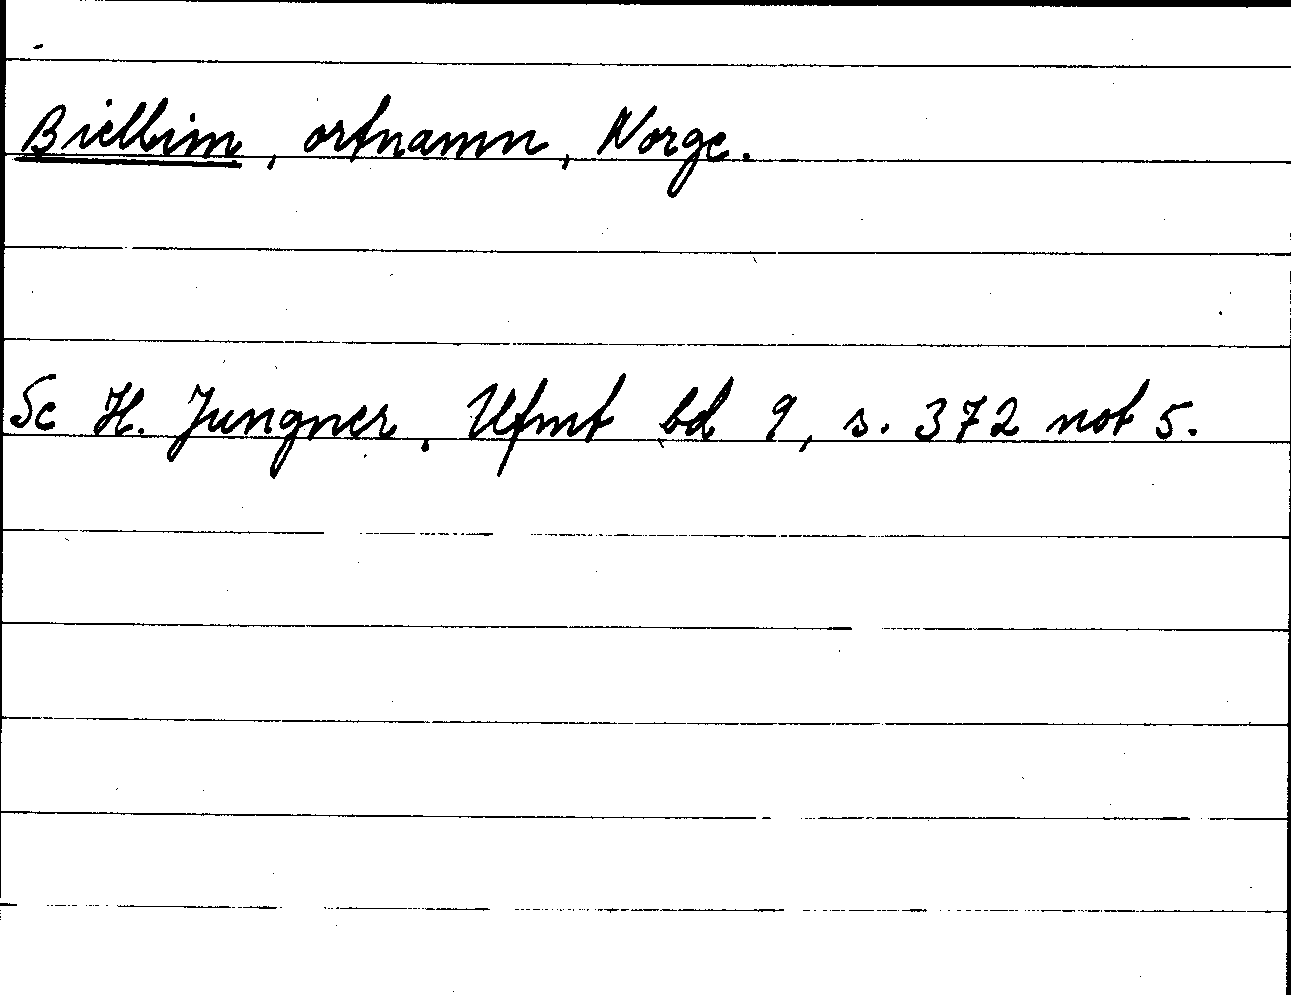 Biellbim, ortnamn, Norge.
Se H. Jungner, Ufmt bd 9, s. 372 not 5.